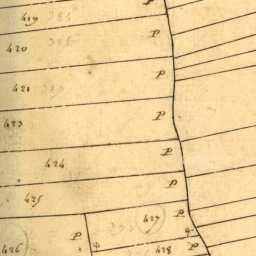 P
419
P
420
P
421
P
423
P
424
P
425
427 P
P
426
428 P